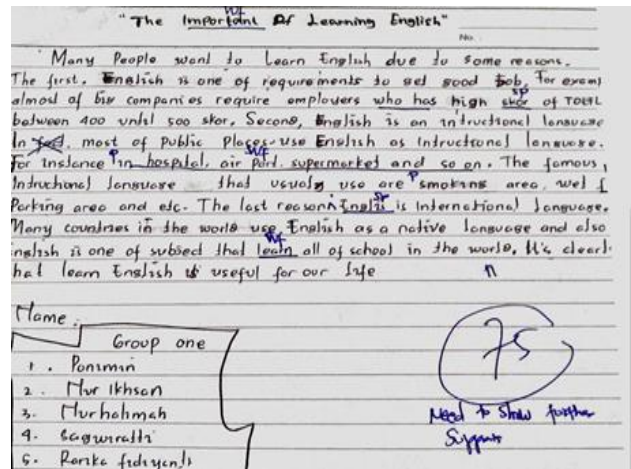 wf
"The Important Of Learning English"
No.
Many People want to Learn English due to some reasons.
The first. English is one of requirements to get good Job. For exam
almost of big companies require employers who has high skor of TOEFL
sp
between 400 until 500 skor. Second, English is an intructional language
In most of Public Places use English as Intructional language.
For instance in hospital, air port, supermarket and so on. The famous,
p wf
Indructional language that usually use are smoking area, wet f
p
Parking area and etc. The last reason English is International language.
sp
Many countries in the world use English as a native language and also
nglish is one of subject that learn all of school in the world. It's clearl
wf
hat learn English is useful for our life
n
Name :
Group one
1. Ponimin
2. Nur Ikhsan
3. Nurhalimah
4.
5. Ranika
75
Need to show further
Support